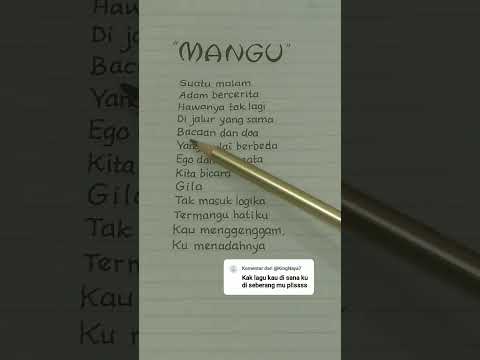 "MANGU"
Suatu malam
Adam bercerita
Hawanya tak lagi
Di jalur yang sama
Bacaan dan doa
Yang berbeda
Ego dan
Kita bicara
Gila
Tak masuk logika
Termangu hatiku
Kau menggenggam,
Ku menadahnya
Komentar dari
Kak lagu kau di sana ku
di seberang mu plissss